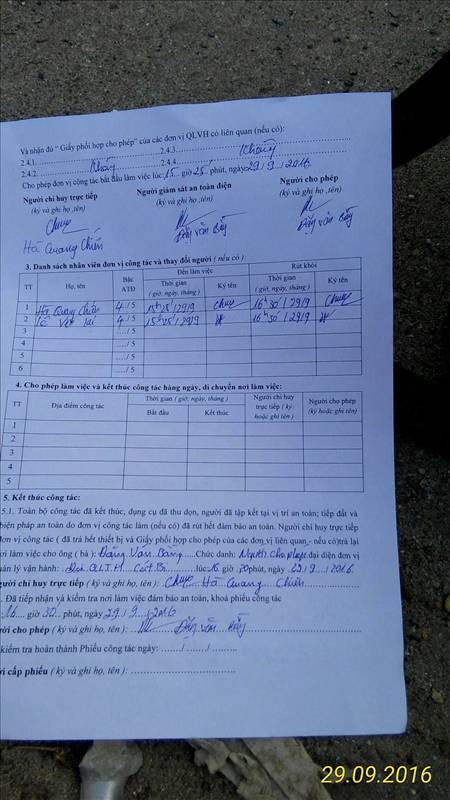 Và nhận đủ " Giấy phối hợp cho phép" của các đơn vị QLVH có liên quan (nếu có):
2.4.1. 2.4.3.
2.4.2. Không 2.4.4. Không
Cho phép đơn vị công tác bắt đầu làm việc lúc: 15 giờ 25 phút, ngày 29 / 9 / 2016
Người chỉ huy trực tiếp Người giám sát an toàn điện Người cho phép
(ký và ghi họ ,tên) (ký và ghi họ ,tên) (ký và ghi họ ,tên)
Đặng văn Đặng văn
Hà Quang Chiến
3. Danh sách nhân viên đơn vị công tác và thay đổi người ( nếu có ):
TT Họ, tên Bậc ATĐ Đến làm việc Rút khỏi
Thời gian ( giờ, ngày, tháng ) Ký tên Thời gian ( giờ, ngày, tháng ) Ký tên
1 Hà Quang Chiến 4 / 5 15h25' / 29/9 16h30' / 29/9
2 Lê Văn 4 / 5 15h25' / 29/9 16h30' / 29/9
3 ..../ 5
4 ..../ 5
5 ..../ 5
6 ..../ 5
4. Cho phép làm việc và kết thúc công tác hàng ngày, di chuyển nơi làm việc:
TT Địa điểm công tác Thời gian ( giờ, ngày, tháng ) Người chỉ huy trực tiếp ( ký hoặc ghi tên ) Người cho phép (ký hoặc ghi tên)
Bắt đầu Kết thúc
1
2
3
4
5
5. Kết thúc công tác:
5.1. Toàn bộ công tác đã kết thúc, dụng cụ đã thu dọn, người đã tập kết tại vị trí an toàn; tiếp đất và
biện pháp an toàn do đơn vị công tác làm (nếu có) đã rút hết đảm bảo an toàn. Người chỉ huy trực tiếp
đơn vị công tác ( đã trả hết thiết bị và Giấy phối hợp cho phép của các đơn vị liên quan - nếu có)trả lại
nơi làm việc cho ông ( bà ): Đặng Văn Chức danh: Người cho phép đại diện đơn vị
quản lý vận hành: Đội QLTH lúc: 16 giờ 30 phút, ngày 29 / 9 / 2016
người chỉ huy trực tiếp ( ký và ghi họ, tên ): Hà Quang Chiến
. Đã tiếp nhận và kiểm tra nơi làm việc đảm bảo an toàn, khoá phiếu công tác
16 giờ 30 phút, ngày 29 / 9 / 2016
ười cho phép ( ký và ghi họ, tên ): Đặng văn
kiểm tra hoàn thành Phiếu công tác ngày: ....../ ....../ ........
ời cấp phiếu ( ký và ghi họ, tên ):
29.09.2016